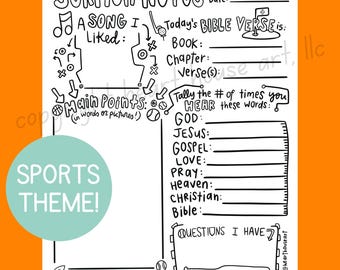 SERMON NOTES
Date:
A SONG I
Liked:
Today's BIBLE VERSE is:
Book:
Chapter:
Verse(s):
Main Points:
(in words or pictures!)
Tally the # of times you
HEAR these words:
GOD:
JESUS:
GOSPEL:
LOVE:
PRAY:
Heaven:
CHRISTIAN:
Bible:
QUESTIONS I HAVE?
SPORTS
THEME!